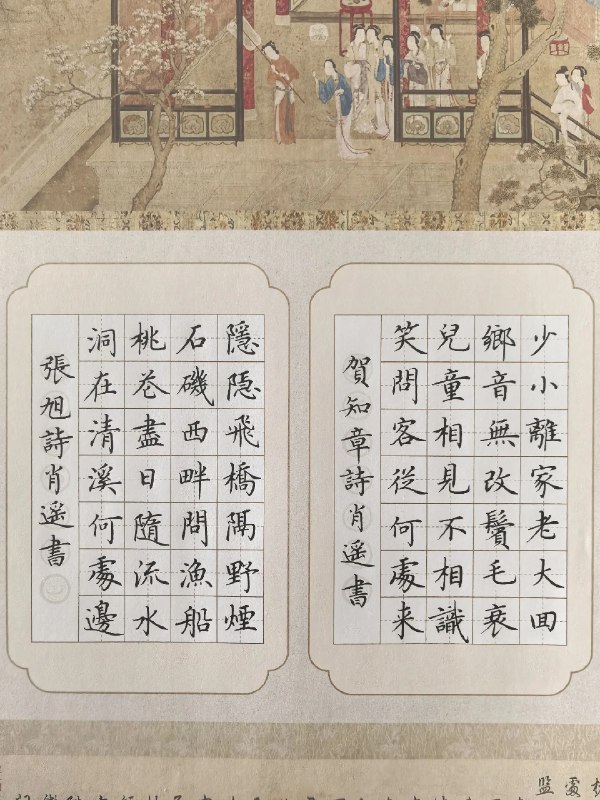 少小離家老大回
鄉音無改鬢毛衰
兒童相見不相識
笑問客從何處来
賀知章詩肖遥書
隱隱飛橋隔野煙
石磯西畔問漁船
桃花盡日隨流水
洞在清溪何處邊
張旭詩肖遥書